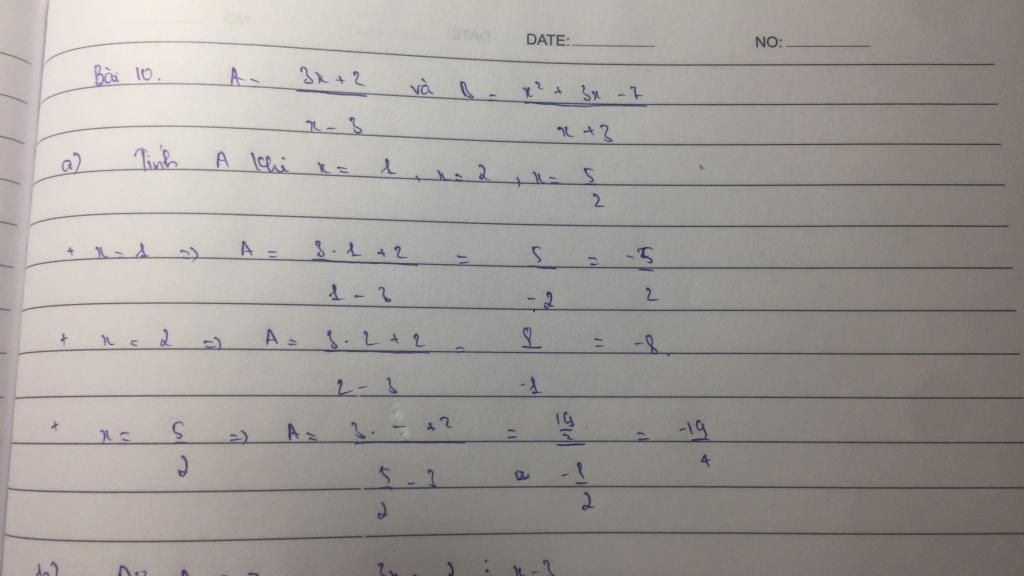 DATE: NO:
Bài 10. A = (3x + 2)/(x - 3) và B = (x² + 3x - 7)/(x + 3)
a) Tính A khi x = 1, x = 2, x = 5/2
+ x = 1 => A = (3·1 + 2)/(1 - 3) = 5/-2 = -5/2
+ x = 2 => A = (3·2 + 2)/(2 - 3) = 8/-1 = -8.
+ x = 5/2 => A = (3· - +2)/(5/2 - 3) = (19/2)/(-1/2) = -19/4